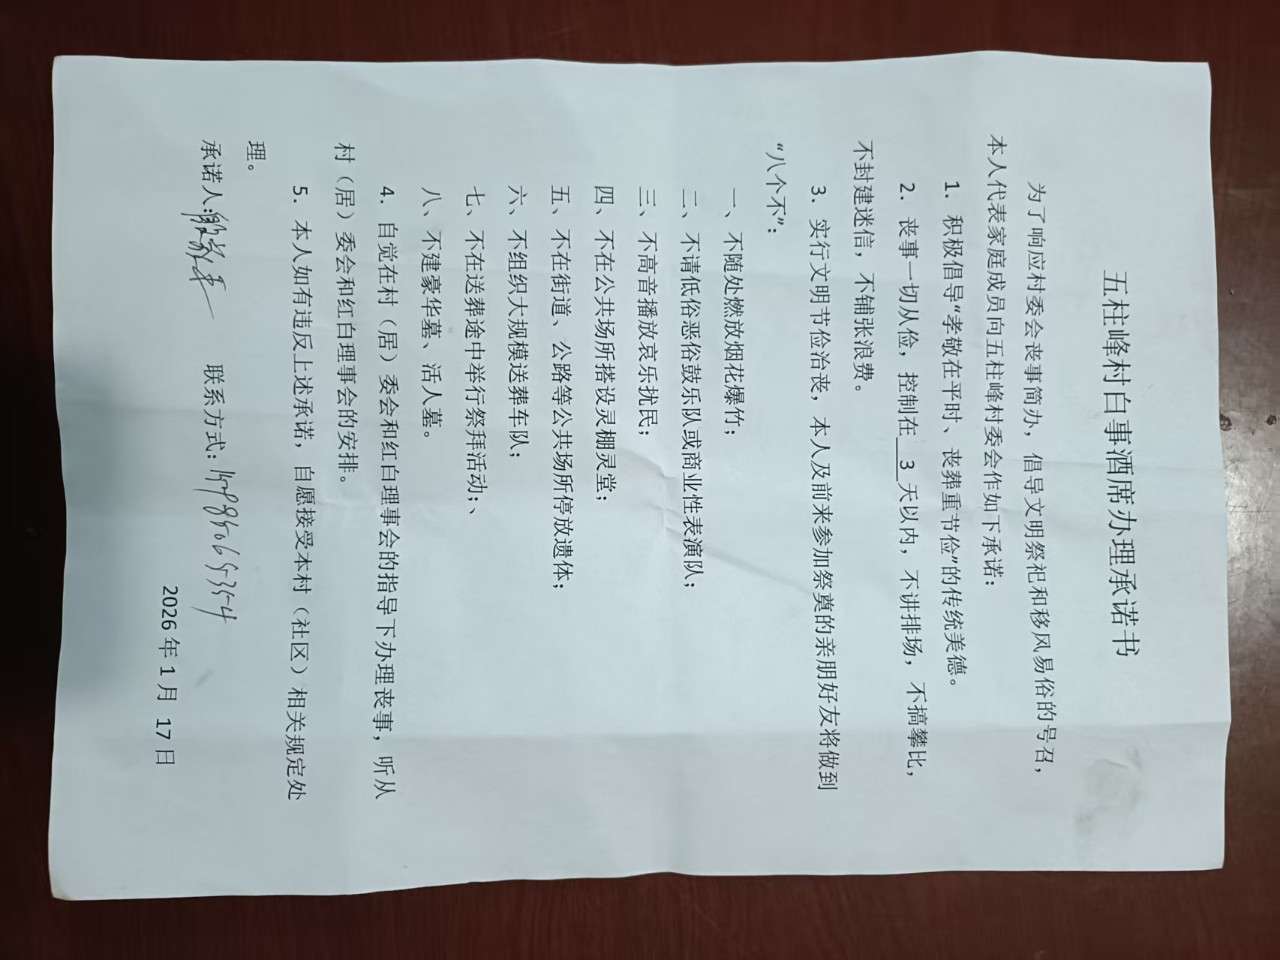 五柱峰村白事酒席办理承诺书
为了响应村委会丧事简办，倡导文明祭祀和移风易俗的号召，
本人代表家庭成员向五柱峰村委会作如下承诺：
1. 积极倡导“孝敬在平时、丧葬重节俭”的传统美德。
2. 丧事一切从俭，控制在 3 天以内，不讲排场，不搞攀比，
不封建迷信，不铺张浪费。
3. 实行文明节俭治丧，本人及前来参加祭奠的亲朋好友将做到
“八个不”：
一、不随处燃放烟花爆竹；
二、不请低俗恶俗鼓乐队或商业性表演队；
三、不高音播放哀乐扰民；
四、不在公共场所搭设灵棚灵堂；
五、不在街道、公路等公共场所停放遗体；
六、不组织大规模送葬车队；
七、不在送葬途中举行祭拜活动；、
八、不建豪华墓、活人墓。
4. 自觉在村（居）委会和红白理事会的指导下办理丧事，听从
村（居）委会和红白理事会的安排。
5. 本人如有违反上述承诺，自愿接受本村（社区）相关规定处
理。
承诺人： 联系方式：
2026 年 1 月 17 日